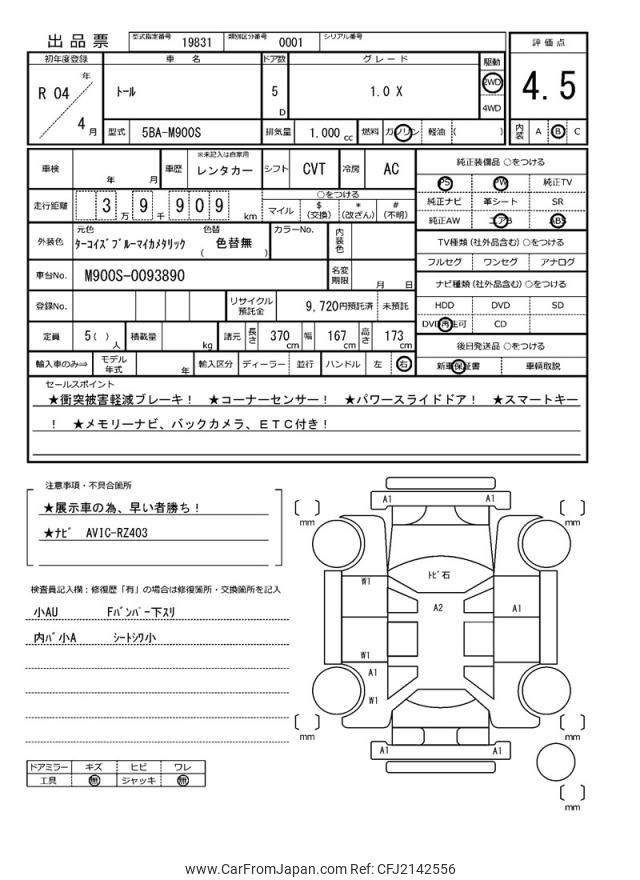 出品票 型式指定番号 19831 類別区分番号 0001 シリアル番号
初年度登録 車名 ドア数 グレード 駆動 評価点
R 04 年 4 月 トール 5 D 1.0 X 2WD 4WD 4.5
型式 5BA-M900S 排気量 1.000 cc 燃料 ガソリン 軽油 ( ) 内装 A B C
車検 年 月 車歴 ※未記入は自家用 レンタカー シフト CVT 冷房 AC
走行距離 3 万 9 千 9 0 9 km
○をつける
マイル $ (交換) * (改ざん) # (不明)
外装色 元色 ターコイズブルーマイカメタリック 色替 ( 色替無 ) カラーNo. 内装色
車台No. M900S-0093890 名変期限 月 日
登録No. リサイクル預託金 9,720円預託済 未預託
定員 5( ) 人 積載量 kg 諸元 長さ 370 cm 幅 167 cm 高さ 173 cm
輸入車のみ⇒ モデル年式 年 輸入区分 ディーラー 並行 ハンドル 左 右
純正装備品 ○をつける
PS PW 純正TV
純正ナビ 革シート SR
純正AW エアB ABS
TV種類(社外品含む)○をつける
フルセグ ワンセグ アナログ
ナビ種類(社外品含む)○をつける
HDD DVD SD
DVD再生可 CD
後日発送品 ○をつける
新車保証書 車輌取説
セールスポイント
★衝突被害軽減ブレーキ! ★コーナーセンサー! ★パワースライドドア! ★スマートキー
! ★メモリーナビ、バックカメラ、ETC付き!
注意事項・不具合箇所
★展示車の為、早い者勝ち!
★ナビ AVIC-RZ403
検査員記入欄:修復歴「有」の場合は修復箇所・交換箇所を記入
小AU Fバンパー下スリ
内バ小A シートシワ小
ドアミラー キズ ヒビ ワレ
工具 無 ジャッキ 無
A1 A1
mm mm
トビ石
W1 A2 A1
W1
A1
W1
mm mm
A1 A1
mm
www.CarFromJapan.com Ref: CFJ2142556